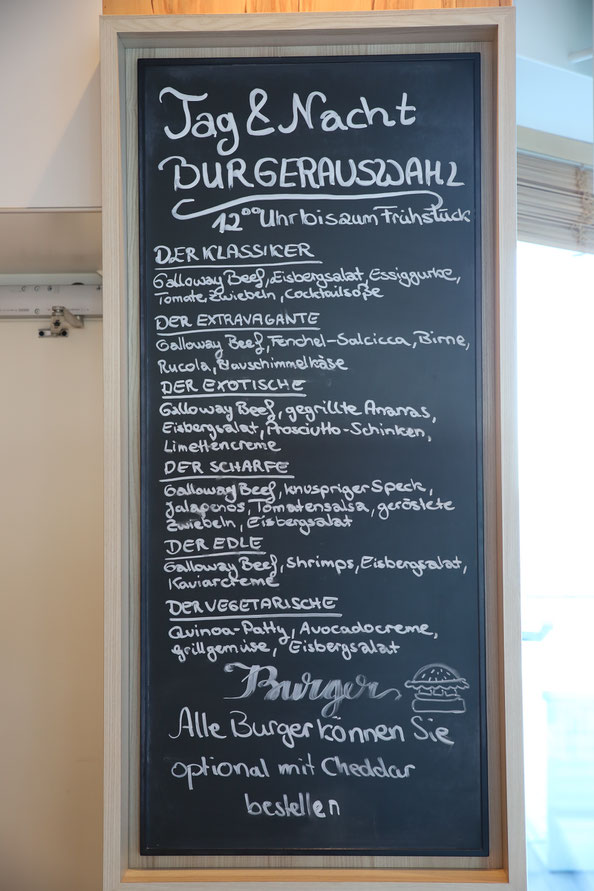 Tag & Nacht
BURGERAUSWAHL
12°° Uhr bis zum Frühstück
DER KLASSIKER
Galloway Beef, Eisbergsalat, Essiggurke,
Tomate, Zwiebeln, Cocktailsoße
DER EXTRAVAGANTE
Galloway Beef, Fenchel-Salcicca, Birne,
Rucola, Blauschimmelkäse
DER EXOTISCHE
Galloway Beef, gegrillte Ananas,
Eisbergsalat, Prosciutto-Schinken,
Limettencreme
DER SCHARFE
Galloway Beef, knuspriger Speck,
Jalapenos, Tomatensalsa, geröstete
Zwiebeln, Eisbergsalat
DER EDLE
Galloway Beef, Shrimps, Eisbergsalat,
Kaviarcreme
DER VEGETARISCHE
Quinoa-Patty, Avocadocreme,
Grillgemüse, Eisbergsalat
Burger
Alle Burger können Sie
optional mit Cheddar
bestellen